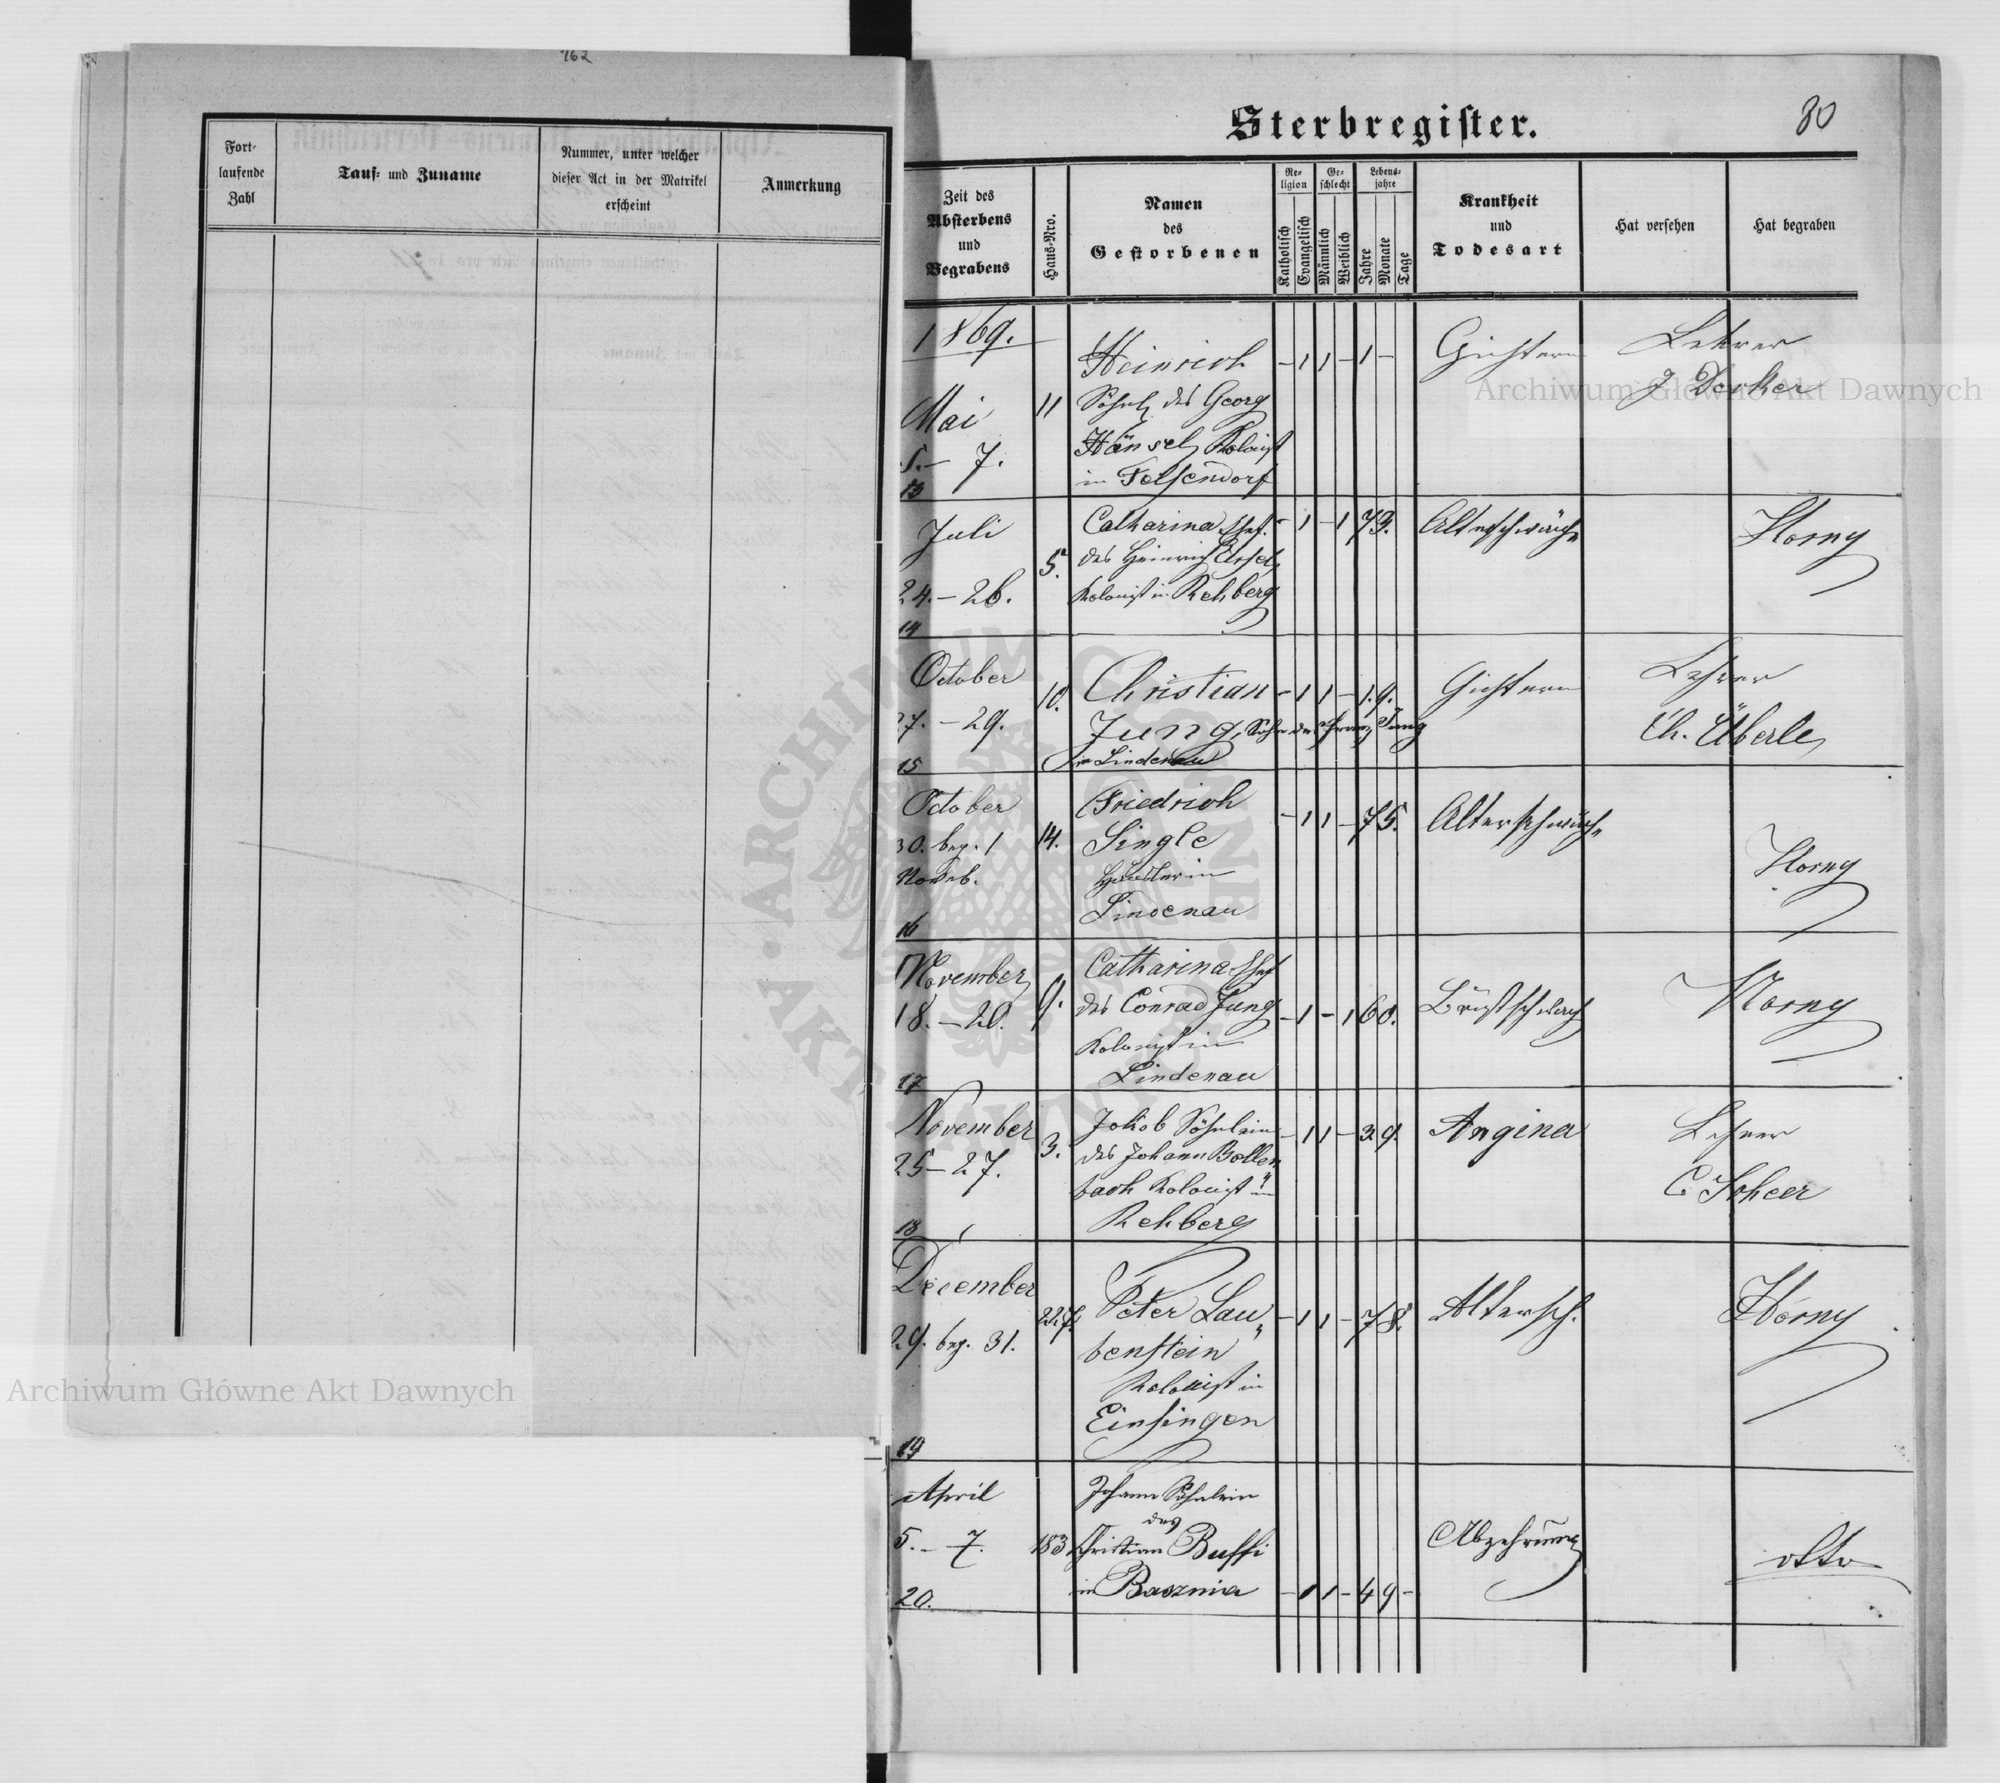 162
Fort-
laufende
Zahl
Tauf- und Zuname
Nummer, unter welcher
dieser Act in der Matrikel
erscheint
Anmerkung
80
Sterbregister.
Zeit des
Absterbens
und
Begrabens
Haus-Nro.
Namen
des
Gestorbenen
Re-
ligion
Katholisch
Evangelisch
Ge-
schlecht
Männlich
Weiblich
Lebens-
jahre
Jahre
Monate
Tage
Krankheit
und
Todesart
Hat versehen
Hat begraben
1869.
Mai
5.– 7.
13
11
Heinrich
Söhnl. des Georg
Hänsel Kolonist
in Felsendorf
– 1 1 – 1 –
Gichtern
Lehrer
J Decker
Juli
24.– 26.
14
5.
Catharina
des Heinrich
Kolonist in Rehberg
– 1 – 1 73.
Altersschwäche
Horny
October
27. – 29.
15
10.
Christian
Jung, Sohn des Franz Jung
in Lindenau
– 1 1 – 1. 9.
Gichtern
Lehrer
Ch. Überle
October
30. beg. 1
Noveb.
16
14.
Friedrich
Single
Häusler in
Lindenau
– 1 1 – 75.
Alterschwäche
Horny
November
18. – 20.
17
9.
Catharina
des Conrad Jung
Kolonist in
Lindenau
– 1 – 1 60.
Brustschwäch
Horny
November
25 – 27.
18
3.
Jakob Söhnlein
des Johann Bollen
bach Kolonist in
Rehberg
– 1 1 – 3. 9.
Angina
Lehrer
C Scheer
December
29. beg. 31.
19
227.
Peter Lau„
benstein
Kolonist in
Einsingen
– 1 1 – 78.
Altersch.
Horny
April
5. – 7.
20.
183
Johann Söhnlein
des
Christian Buffi
in Basznia
– 1 1 – 4 9 –
Abzehrung
otto
Archiwum Główne Akt Dawnych
Archiwum Główne Akt Dawnych
ARCHIWUM GŁÓWNE AKT DAWNYCH